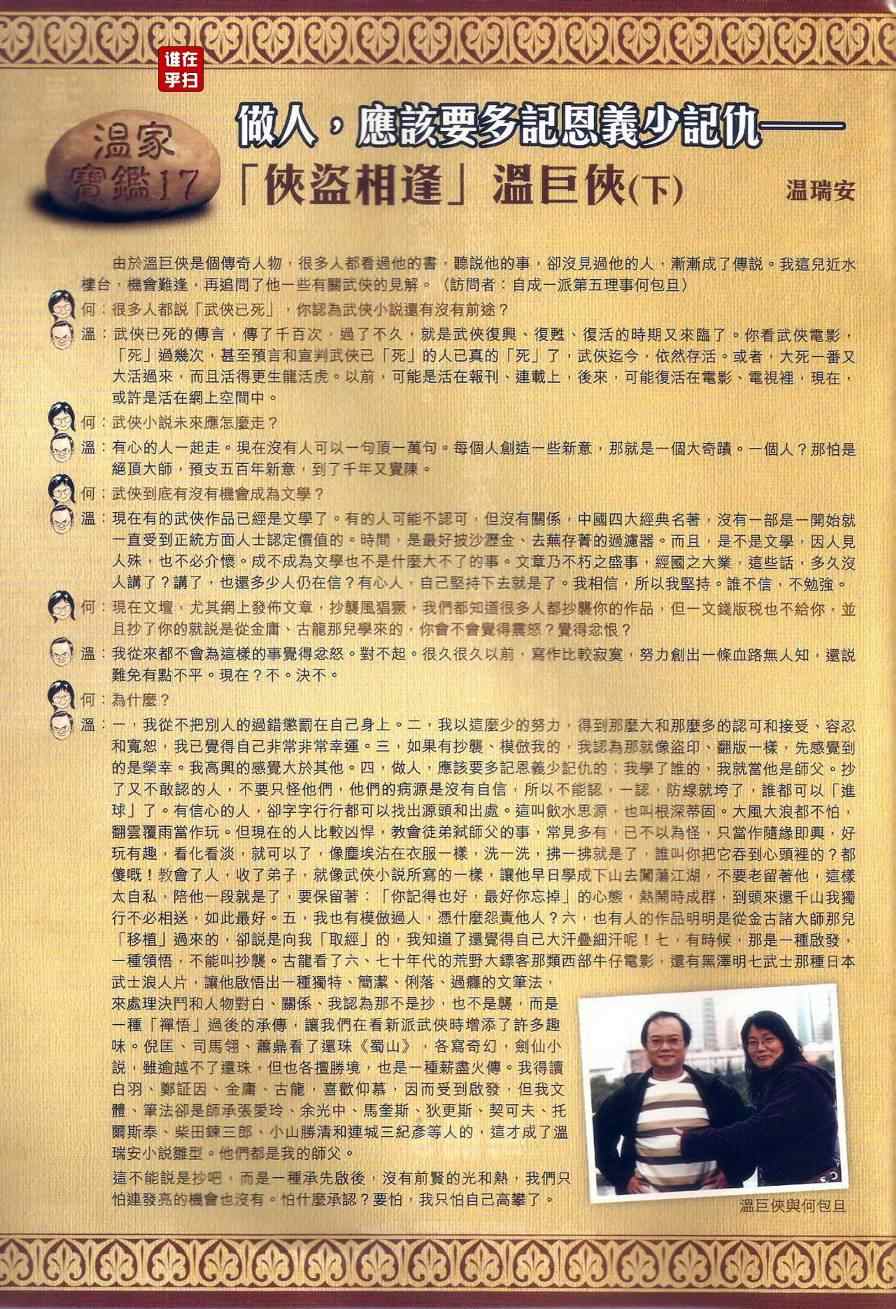 谁在
乎扫
温家
寶鑑17
做人，應該要多記恩義少記仇——
「俠盜相逢」溫巨俠(下)
温瑞安
由於溫巨俠是個傳奇人物，很多人都看過他的書，聽說他的事，卻沒見過他的人，漸漸成了傳說。我這兒近水
樓台，機會難逢，再追問了他一些有關武俠的見解。（訪問者：自成一派第五理事何包旦）
何：很多人都說「武俠已死」，你認為武俠小說還有沒有前途？
溫：武俠已死的傳言，傳了千百次，過了不久，就是武俠復興、復甦、復活的時期又來臨了。你看武俠電影，
「死」過幾次，甚至預言和宣判武俠已「死」的人已真的「死」了，武俠迄今，依然存活。或者，大死一番又
大活過來，而且活得更生龍活虎。以前，可能是活在報刊、連載上，後來，可能復活在電影、電視裡，現在，
或許是活在網上空間中。
何：武俠小說未來應怎麼走？
溫：有心的人一起走。現在沒有人可以一句頂一萬句。每個人創造一些新意，那就是一個大奇蹟。一個人？那怕是
絕頂大師，預支五百年新意，到了千年又覺陳。
何：武俠到底有沒有機會成為文學？
溫：現在有的武俠作品已經是文學了。有的人可能不認可，但沒有關係，中國四大經典名著，沒有一部是一開始就
一直受到正統方面人士認定價值的。時間，是最好披沙瀝金、去蕪存菁的過濾器。而且，是不是文學，因人見
人殊，也不必介懷。成不成為文學也不是什麼大不了的事。文章乃不朽之盛事，經國之大業，這些話，多久沒
人講了？講了，也還多少人仍在信？有心人，自己堅持下去就是了。我相信，所以我堅持。誰不信，不勉強。
何：現在文壇，尤其網上發佈文章，抄襲風猖獗，我們都知道很多人都抄襲你的作品，但一文錢版税也不給你，並
且抄了你的就說是從金庸、古龍那兒學來的，你會不會覺得震怒？覺得忿恨？
溫：我從來都不會為這樣的事覺得忿怒。對不起。很久很久以前，寫作比較寂寞，努力創出一條血路無人知，還說
難免有點不平。現在？不。決不。
何：為什麼？
溫：一，我從不把別人的過錯懲罰在自己身上。二，我以這麼少的努力，得到那麼大和那麼多的認可和接受、容忍
和寬恕，我已覺得自己非常非常幸運。三，如果有抄襲、模倣我的，我認為那就像盜印、翻版一樣，先感覺到
的是榮幸。我高興的感覺大於其他。四，做人，應該要多記恩義少記仇的；我學了誰的，我就當他是師父。抄
了又不敢認的人，不要只怪他們，他們的病源是沒有自信，所以不能認，一認，防線就垮了，誰都可以「進
球」了。有信心的人，卻字字行行都可以找出源頭和出處。這叫飲水思源，也叫根深蒂固。大風大浪都不怕，
翻雲覆雨當作玩。但現在的人比較凶悍，教會徒弟弒師父的事，常見多有，已不以為怪，只當作隨緣即興，好
玩有趣，看化看淡，就可以了，像塵埃沾在衣服一樣，洗一洗，拂一拂就是了，誰叫你把它吞到心頭裡的？都
傻嘅！教會了人，收了弟子，就像武俠小說所寫的一樣，讓他早日學成下山去闖蕩江湖，不要老留著他，這樣
太自私，陪他一段就是了，要保留著：「你記得也好，最好你忘掉」的心態，熱鬧時成群，到頭來還千山我獨
行不必相送，如此最好。五，我也有模倣過人，憑什麼怨責他人？六，也有人的作品明明是從金古諸大師那兒
「移植」過來的，卻說是向我「取經」的，我知道了還覺得自己大汗疊細汗呢！七，有時候，那是一種啟發，
一種領悟，不能叫抄襲。古龍看了六、七十年代的荒野大鏢客那類西部牛仔電影，還有黑澤明七武士那種日本
武士浪人片，讓他啟悟出一種獨特、簡潔、俐落、過癮的文筆法，
來處理決鬥和人物對白、關係、我認為那不是抄，也不是襲，而是
一種「禪悟」過後的承傳，讓我們在看新派武俠時增添了許多趣
味。倪匡、司馬翎、蕭鼎看了還珠《蜀山》，各寫奇幻，劍仙小
說，雖逾越不了還珠，但也各擅勝境，也是一種薪盡火傳。我得讀
白羽、鄭証因、金庸、古龍，喜歡仰慕，因而受到啟發，但我文
體、筆法卻是師承張愛玲、余光中、馬奎斯、狄更斯、契可夫、托
爾斯泰、柴田鍊三郎、小山勝清和連城三紀彥等人的，這才成了溫
瑞安小說雛型。他們都是我的師父。
這不能說是抄吧，而是一種承先啟後，沒有前賢的光和熱，我們只
怕連發亮的機會也沒有。怕什麼承認？要怕，我只怕自己高攀了。
溫巨俠與何包旦